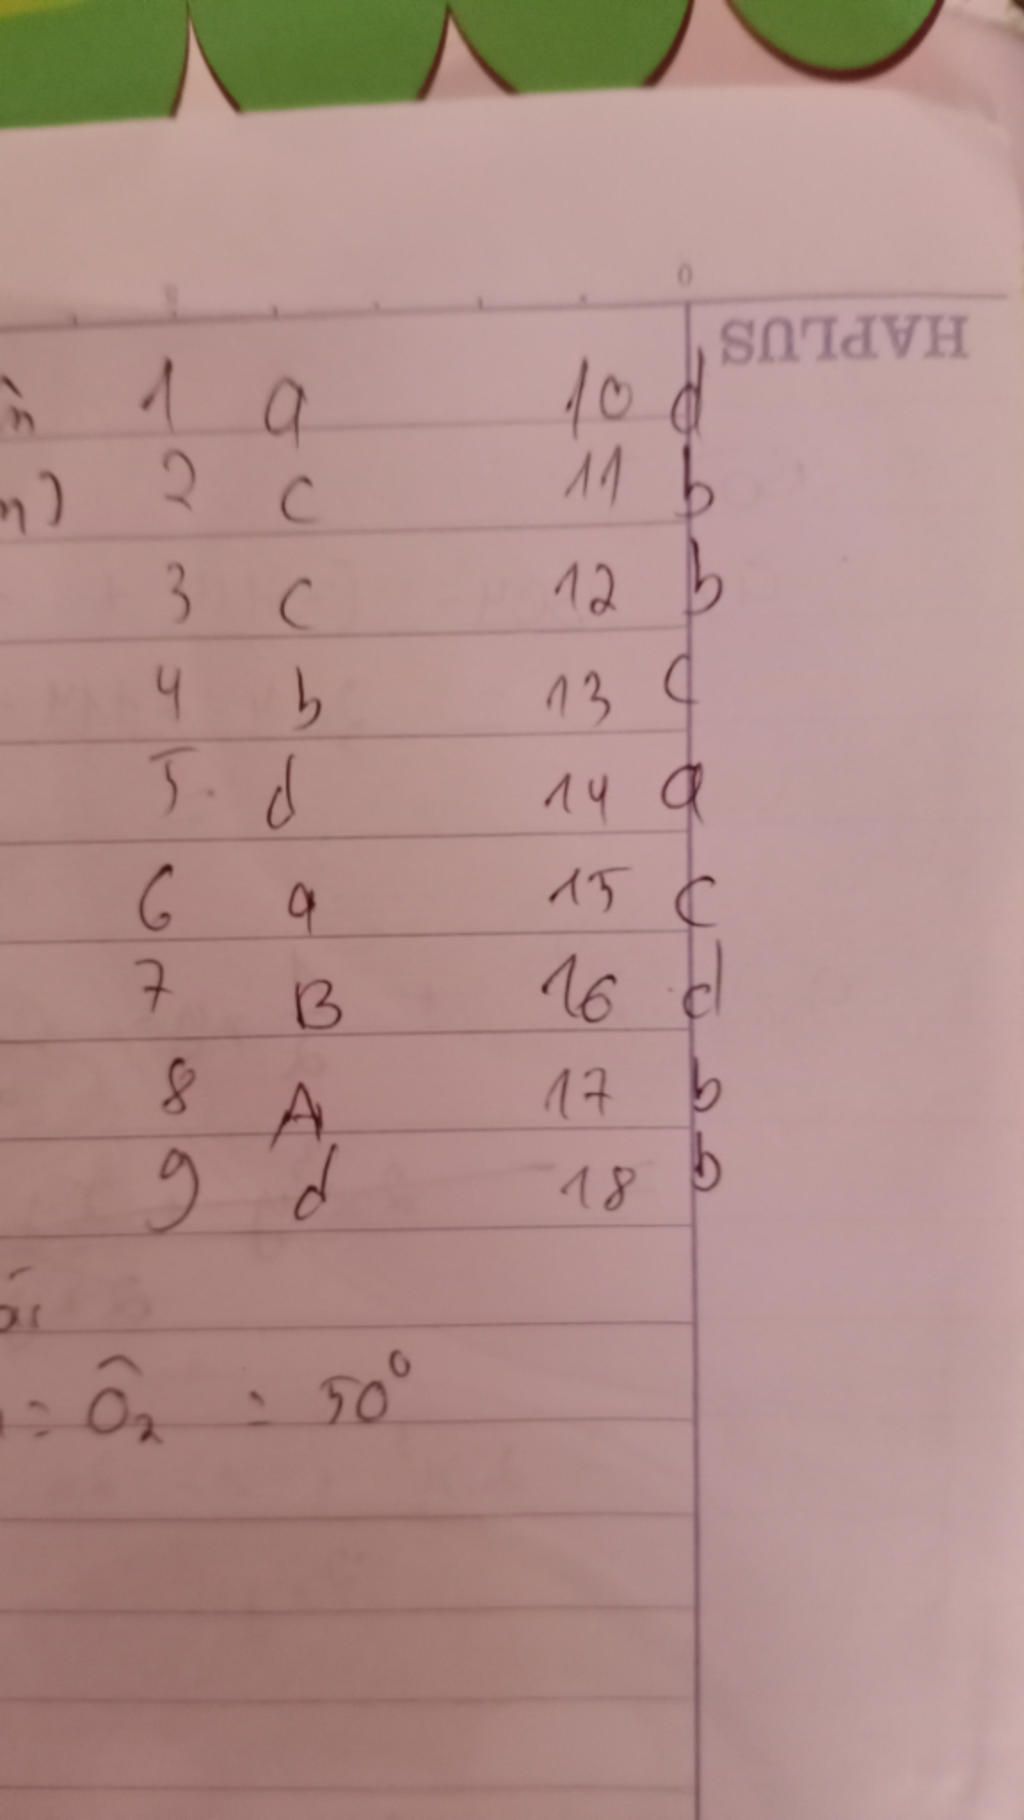 0
HAPLUS
1 a 10 d
2 c 11 b
3 c 12 b
4 b 13 c
5. d 14 a
6 a 15 c
7 B 16 d
8 A 17 b
9 d 18 b
= Ô₂ = 50⁰